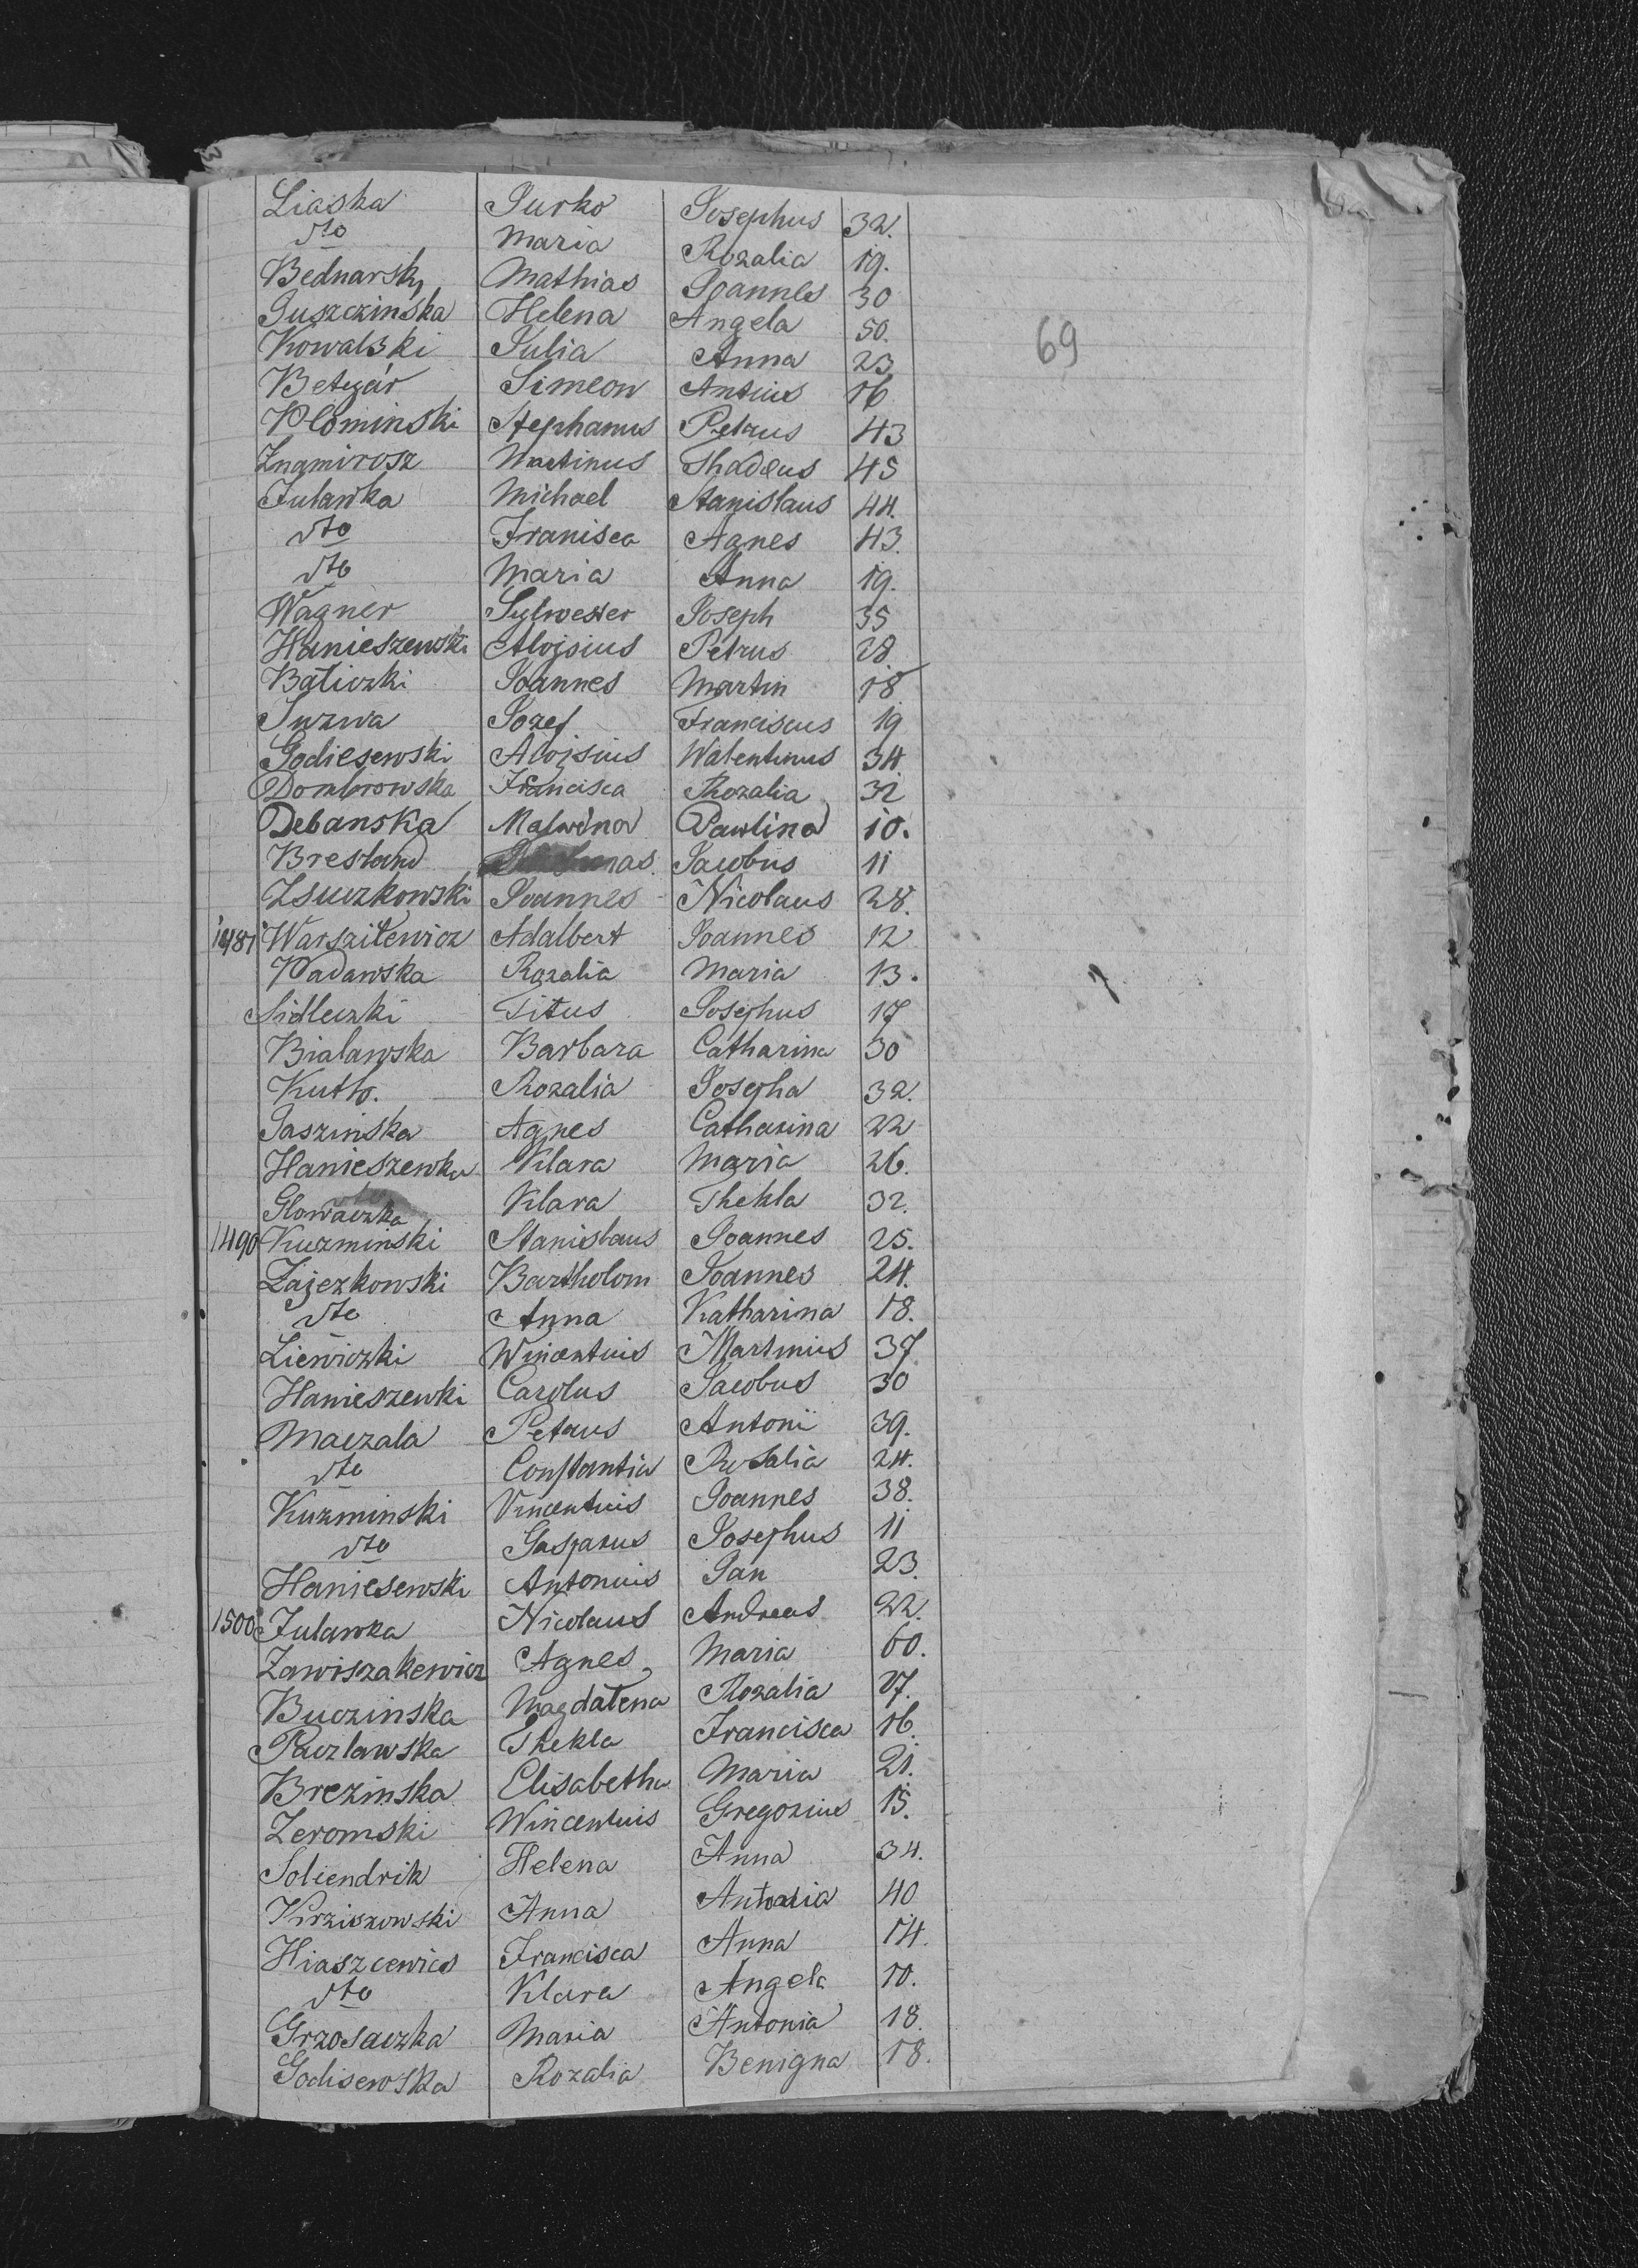 Liaska Jurko Josephus 32.
dto Maria Rozalia 19.
Bednarsky Mathias Joannes 30
Juszczinska Helena Angela 50.
Kowalski Julia Anna 23
69
Betegár Simeon Antius 16
Plominski Stephanus Petrus 43
Znamirosz Martinus Thadeus 45
Julawka Michael Stanislaus 44.
dto Franisca Agnes 43.
dto Maria Anna 19.
Wagner Sylwester Joseph 35
Hanieszewski Alojsius Petrus 28
Baticzki Joannes Martin 18
Suzwa Jozef Franciscus 19
Godiesewski Alojsius Walentinus 34
Dombrowska Francisca Rozalia 32
Debanska Malwina Pawlina 10.
Bresland Jacobus 11
Zsuczkowski Joannes Nicolaus 28.
1481 Warszilewicz Adalbert Joannes 12
Padawska Rozalia Maria 13.
Sidleczki Titus Josephus 17
Bialawska Barbara Catharina 30
Kutb. Rozalia Josepha 32.
Jaszinska Agnes Catharina 22
Hanieszewka Klara Maria 26.
Glowaczka Klara Thekla 32.
1490 Kuzminski Stanislaus Joannes 25.
Zajezkowski Bartholom Joannes 24.
dto Anna Katharina 18.
Liewiczki Wincentius Martinius 37
Hanieszewki Carolus Jacobus 30
Maczala Petrus Antonii 39.
dto Constantia Rosalia 24.
Kuzminski Vincentius Joannes 38.
dto Gasparus Josephus 11
Haniesewski Antonius Jan 23.
1500 Julawka Nicolaus Andreas 22.
Zawiszakewicz Agnes Maria 60.
Buczinska Magdalena Rozalia 27.
Paczlawska Thekla Francisca 16.
Brezinska Elisabetha Maria 21.
Zeromski Wincentius Gregorius 15.
Soliendrik Helena Anna 34.
Kirziszowski Anna Antonia 40
Hiaszcewics Francisca Anna 14.
dto Klara Angela 10.
Grzosaczka Maria Antonia 18.
Godisewska Rozalia Benigna 18.